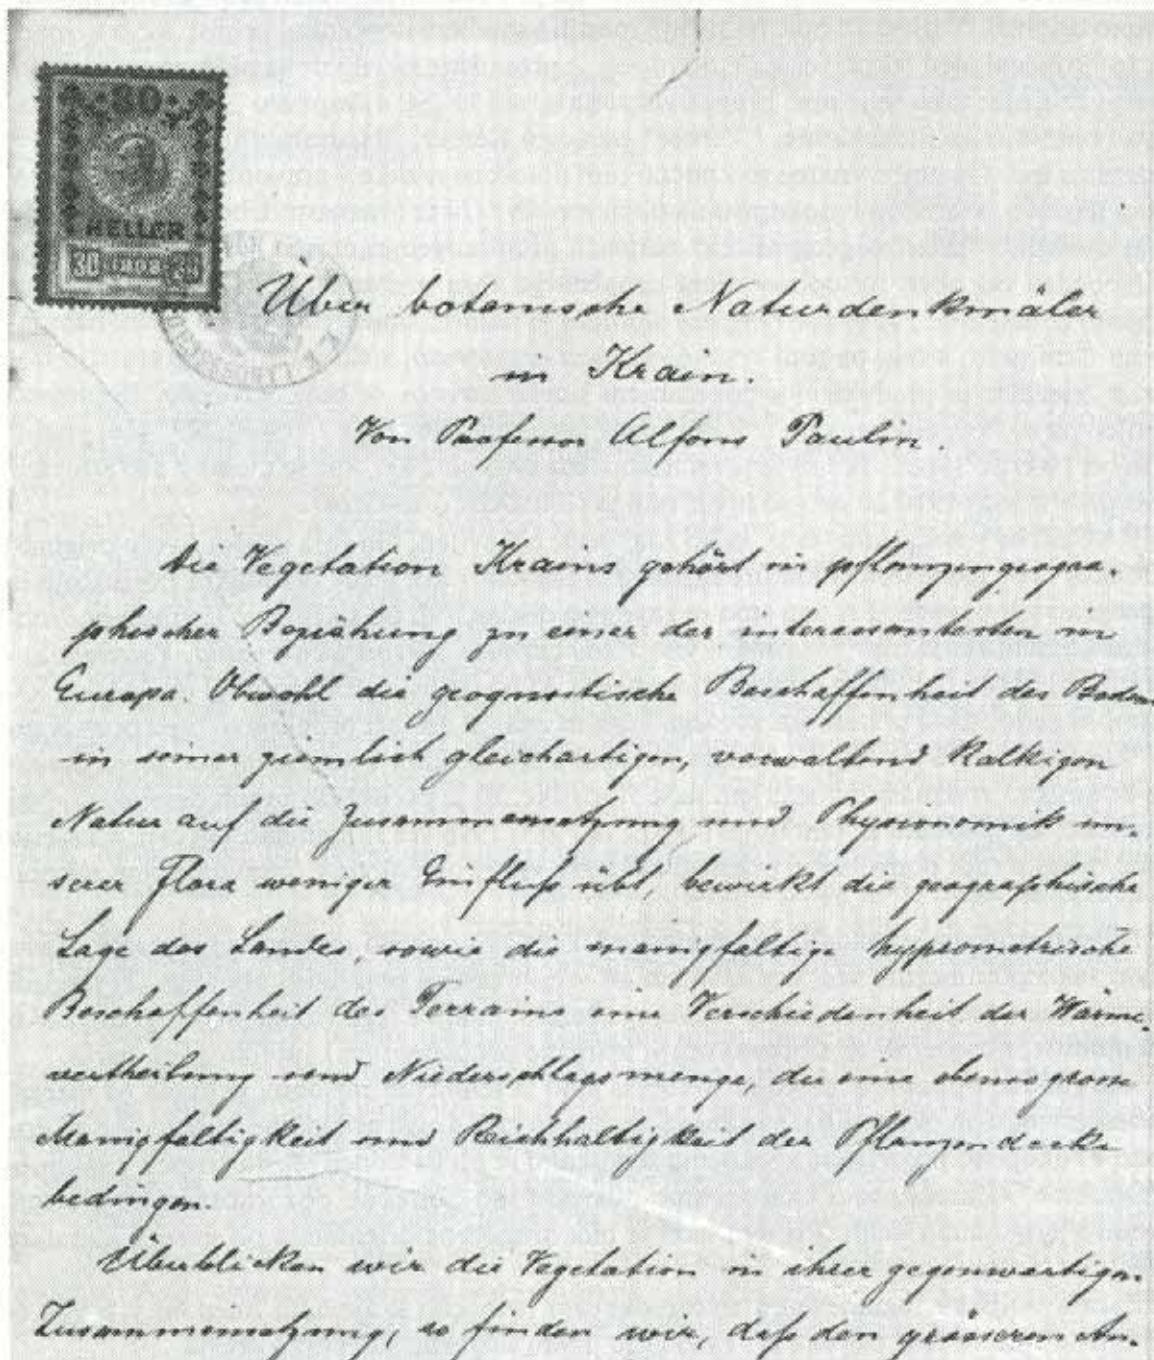 30
HELLER
30
Über botanische Naturdenkmäler
in Krain.
Von Professor Alfons Paulin.
Die Vegetation Krains gehört in pflanzengeogra-
phischer Beziehung zu einer der interessantesten in
Europa. Obwohl die geognostische Beschaffenheit des Bodens
in seiner ziemlich gleichartigen, vorwaltend kalkigen
Natur auf die Zusammensetzung und Physionomik un-
serer Flora weniger Einfluß übt, bewirkt die geographische
Lage des Landes, sowie die manigfaltige hypsometrische
Beschaffenheit des Terrains eine Verschiedenheit der Wärme-
vertheilung und Niederschlagsmenge, die eine ebenso grosse
Manigfaltigkeit und Reichhaltigkeit der Pflanzendecke
bedingen.
Überblicken wir die Vegetation in ihrer gegenwärtigen
Zusammensetzung, so finden wir, daß den grösseren An-